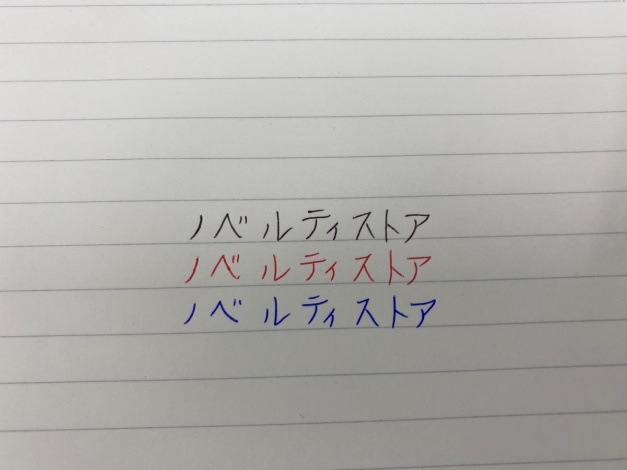 ノベルティストア
ノベルティストア
ノベルティストア